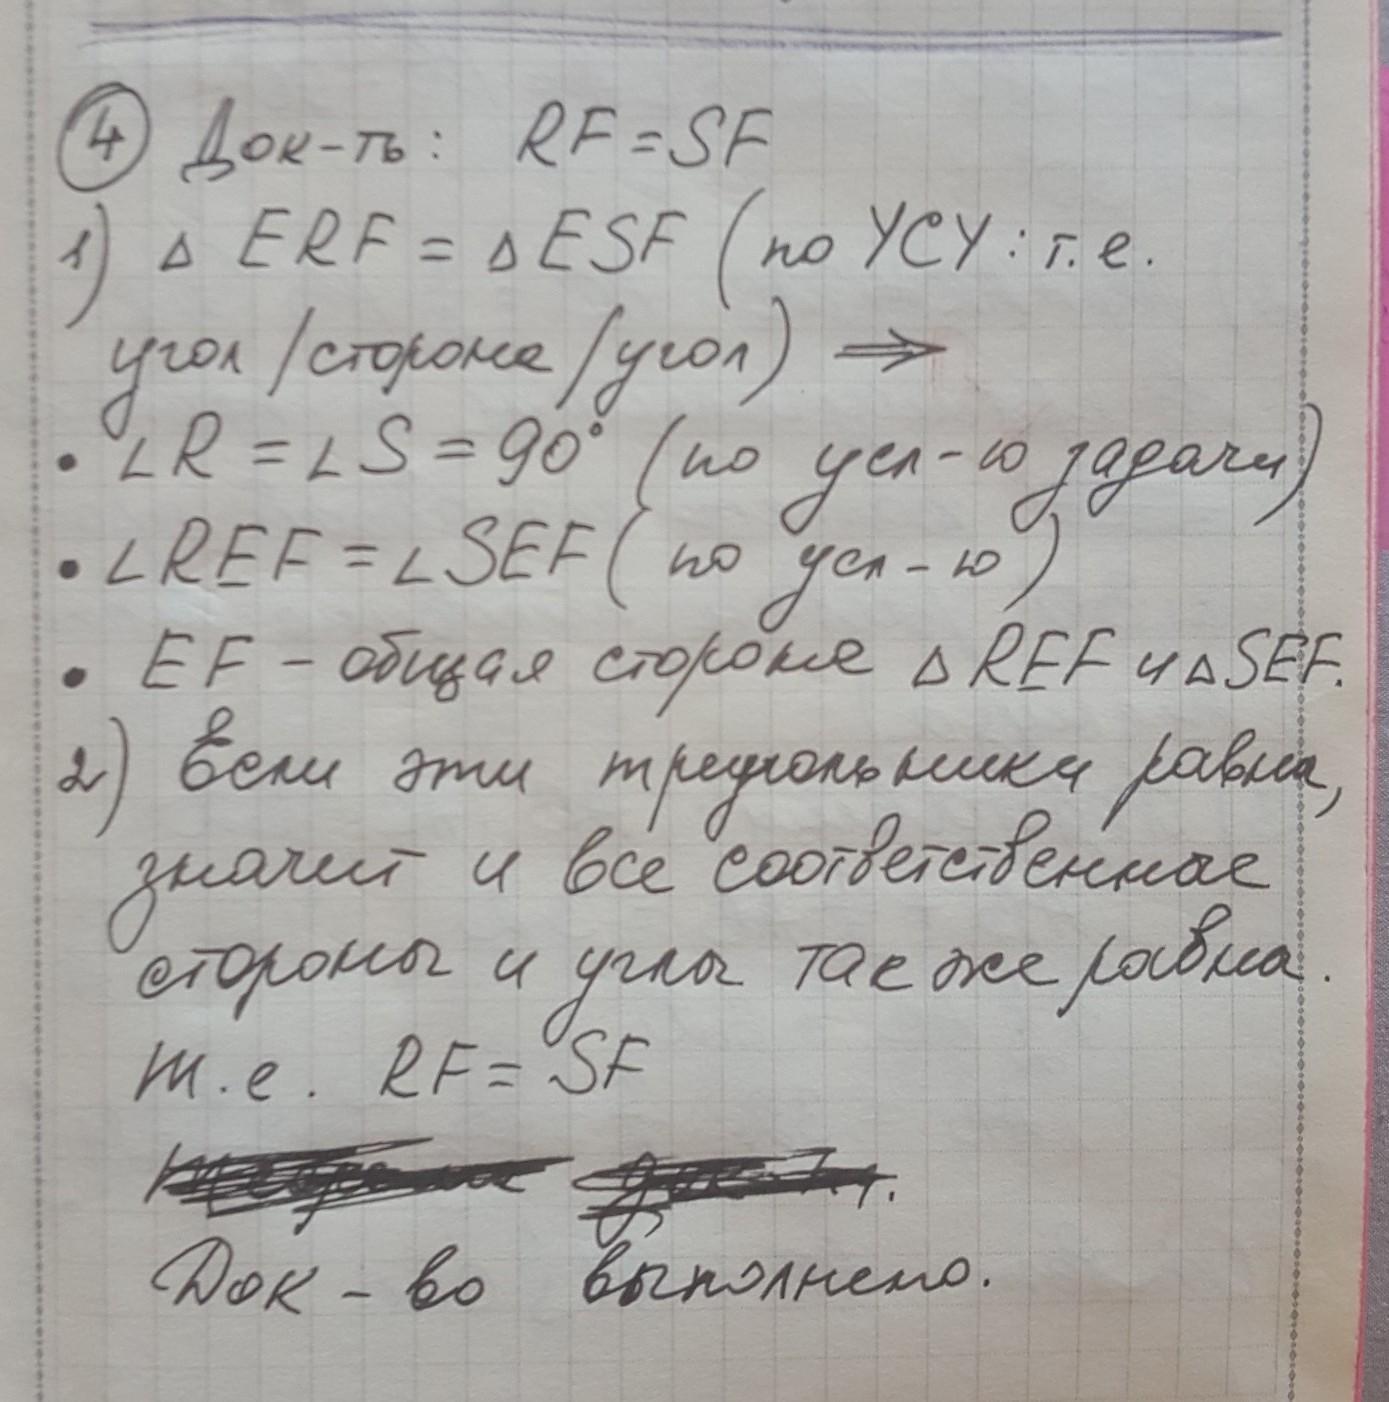 4 Док-ть: RF = SF
1) △ ERF = △ ESF (по УСУ: т.е.
угол/сторона/угол) ⇒
• ∠R = ∠S = 90° (по усл-ю задачи)
• ∠REF = ∠SEF (по усл-ю)
• EF – общая сторона △ REF и △ SEF.
2) Если эти треугольники равны,
значит и все соответственные
стороны и углы также равны.
т.е. RF = SF
Док-во выполнено.